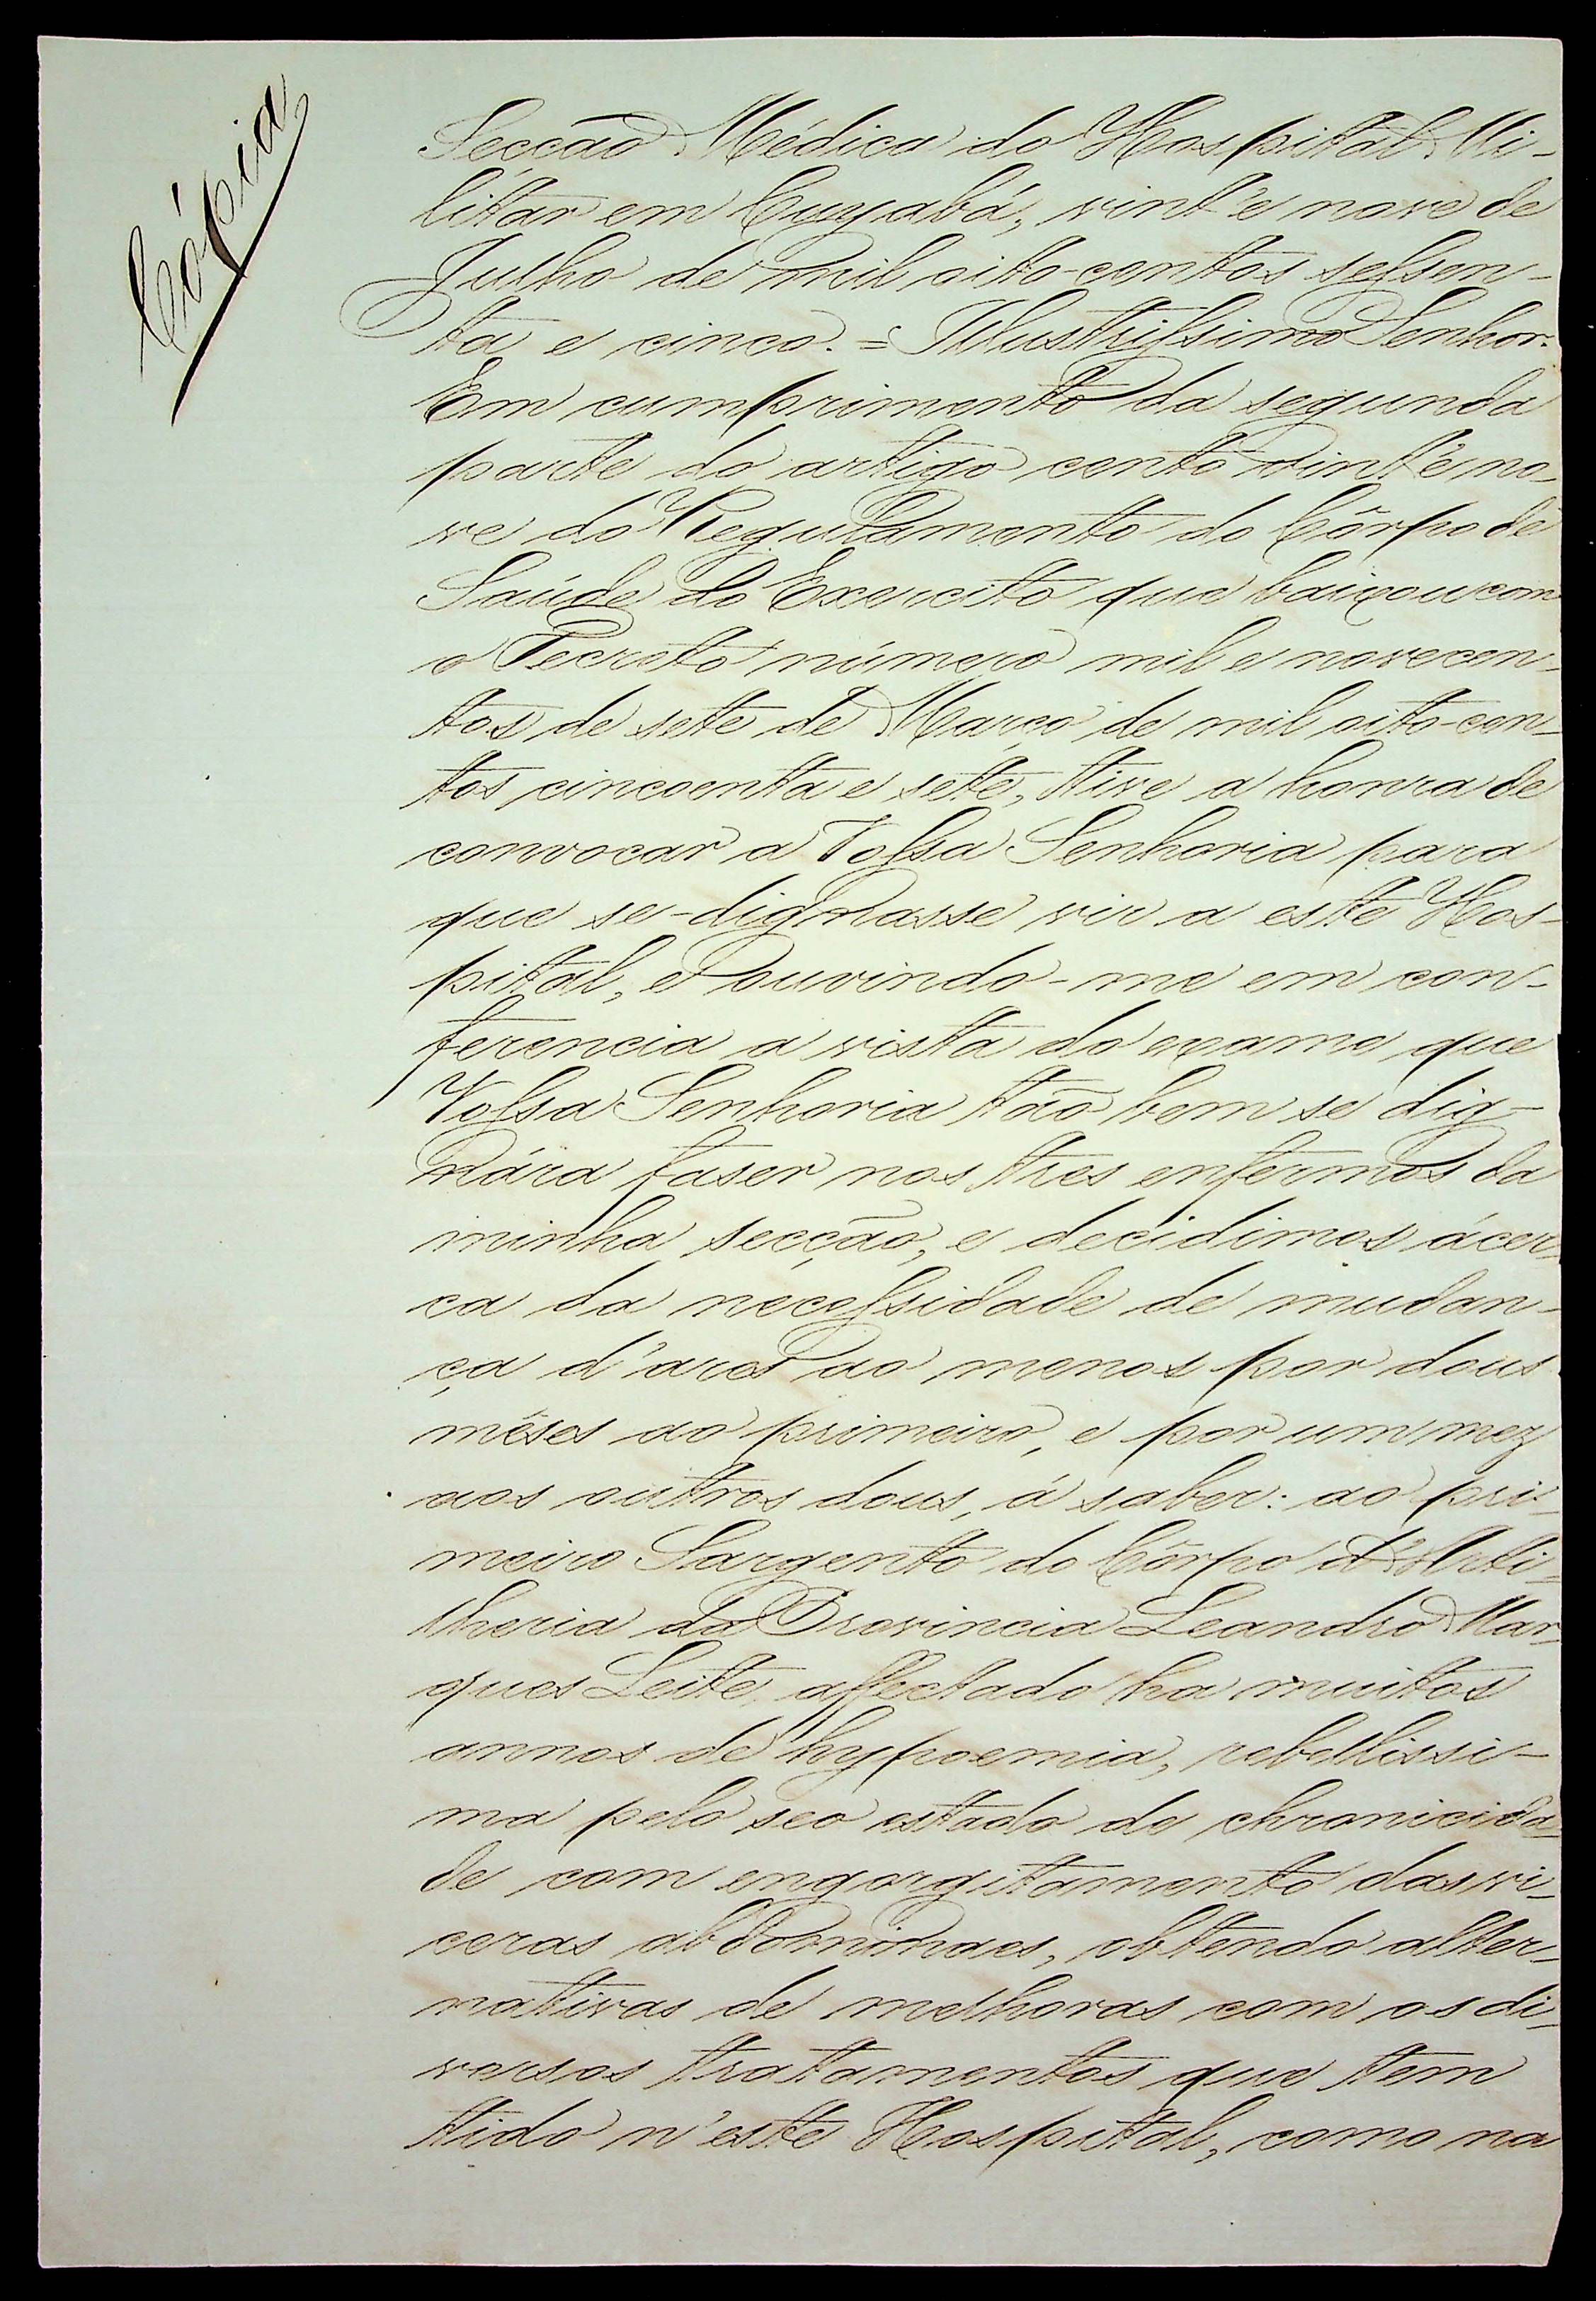 Cópia
Secção Médica do Hospital Mi-
litar em Cuyabá, vint'e nove de
Julho de mil oito-centos sessen-
ta e cinco. = Illustrissimo Senhor.
Em cumprimento da segunda
parte do artigo cento vint'e no-
ve do Regulamento do Côrpo de
Saúde do Exercito que baixou com
o Decreto número mil e novecen-
tos de sette de Março de mil oito-cen-
tos cincoenta e sette, tive a honra de
convocar a Vossa Senhoria para
que se-dignasse vir a este Hos-
pital, e ouvindo-me em con-
ferencia a vista do exame que
Vossa Senhoria tão bem se dig-
nára faser nos tres enfermos da
minha secção, e decidimos ácer-
ca da necessidade de mudan-
ça d'ares ao menos por dous
mêses ao primeiro, e por um mez
aos outros dous, á saber: ao pri-
meiro Sargento do Côrpo d'Arti-
lheria da Provincia Leandro Mar-
ques Leite, affectado ha muitos
annos de hypoemia, rebellissi-
ma pelo seo estado de chronicida-
de com engorgitamento das vi-
ceras abdominaes, obtendo alter-
nativas de melhoras com os di-
versos tratamentos que tem
tido n'este Hospital, como na